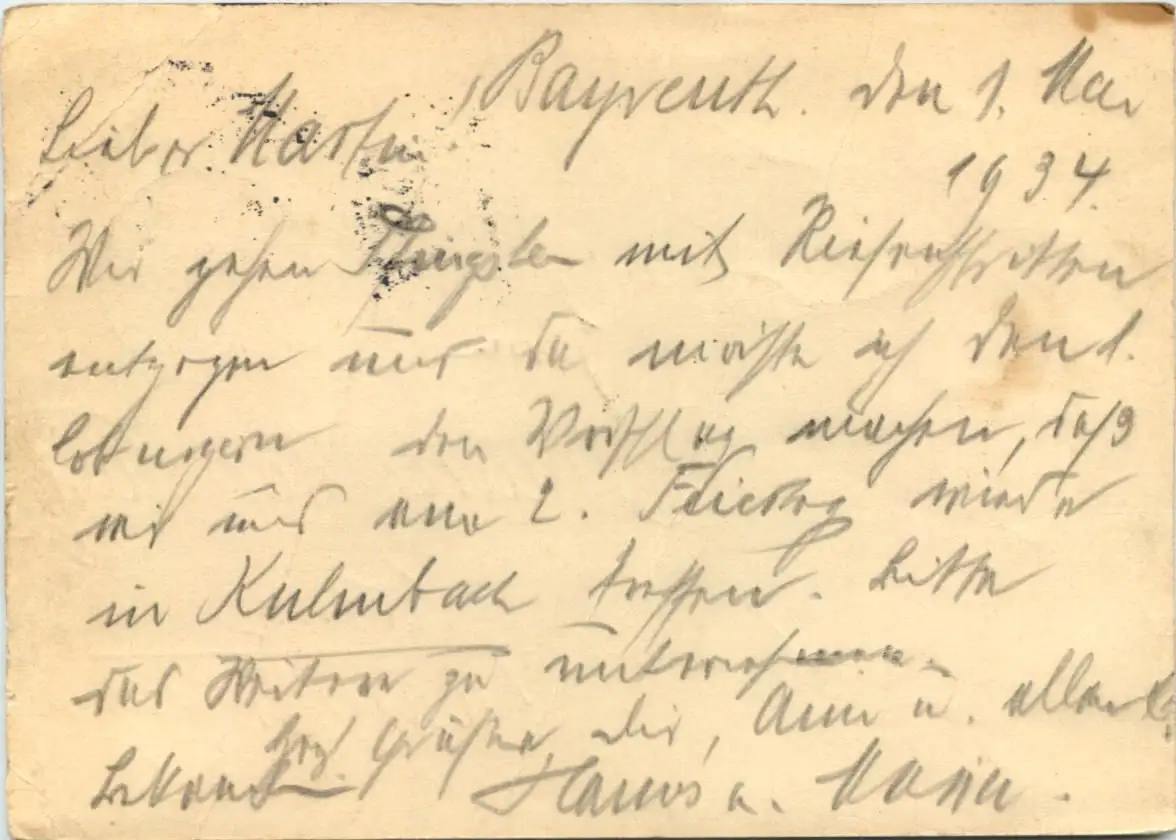 Bayreuth. den 1. Mai
1934.
Lieber Martin!
Wir gehen Pfingsten mit Riesenschritten
entgegen und da möchte ich den l.
Coburgern den Vorschlag machen, daß
wir uns am 2. Feiertag wieder
in Kulmbach treffen. Bitte
das Weitere zu unternehmen.
Herzl. Grüße dir, Anni u. allen
Bekannten Hans u.